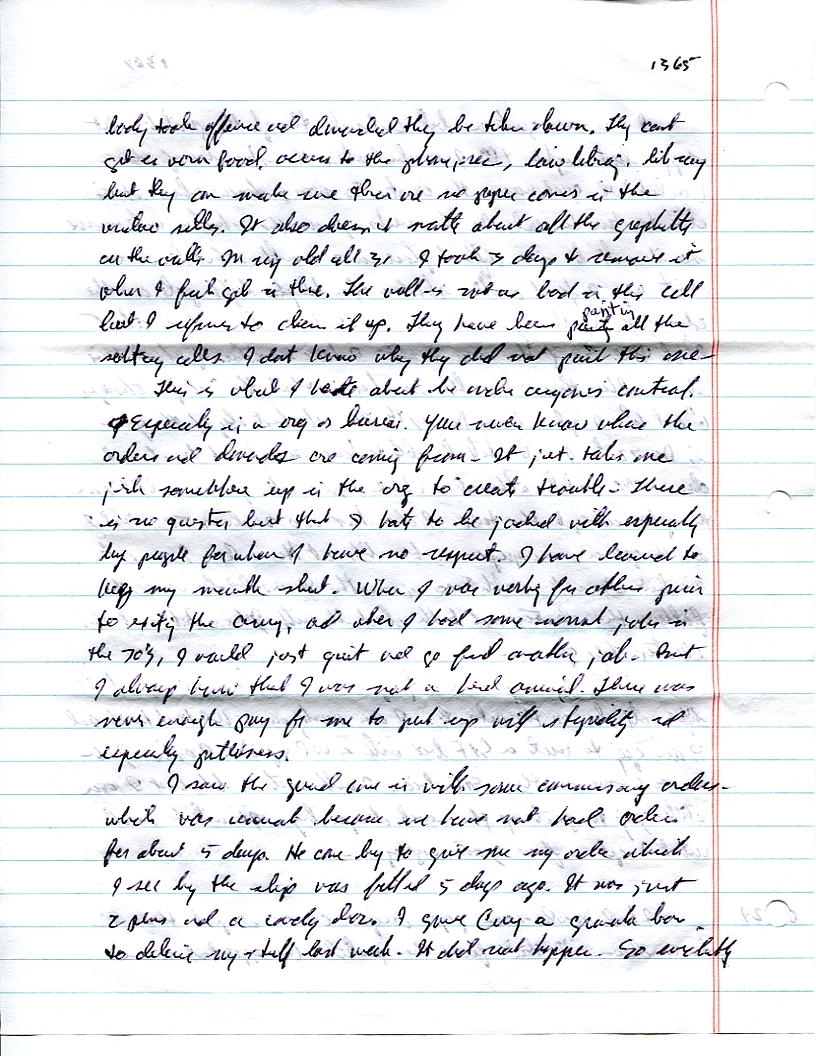 1365
body took offence and demanded they be taken down. They cant
get us warm food, access to the phone, rec, law library, library
but they can make sure there are no paper cones in the
window sills. It also doesn't matter about all the
on the walls. In my old cell I took 3 days to remove it
when I first got in there. The wall is not as bad in this cell
but I refuse to clean it up. They have been painting all the
solitary cells. I dont know why they did not paint this one-
This is what I hate about be under anyones control.
Especially in a org or bureau. You never know where the
orders and demands are coming from- It just takes one
jerk somewhere up in the org to create trouble- There
is no question but that I hate to be jacked with especially
by people for whom I have no respect. I have learned to
keep my mouth shut. When I was working for others prior
to the army, and when I had some normal jobs in
the 70's, I would just quit and go find another job- But
I always knew that I was not a herd animal. There was
never enough pay for me to put up with stupidity and
especially
I saw the guard come in with some commissary orders-
which was unusual because we have not had orders
for about 5 days. He came by to give me my order which
I see by the slip was filled 5 days ago. It was just
2 pens and a candy bar. I gave a granola bar
to my last week. It did not happen. So evidently